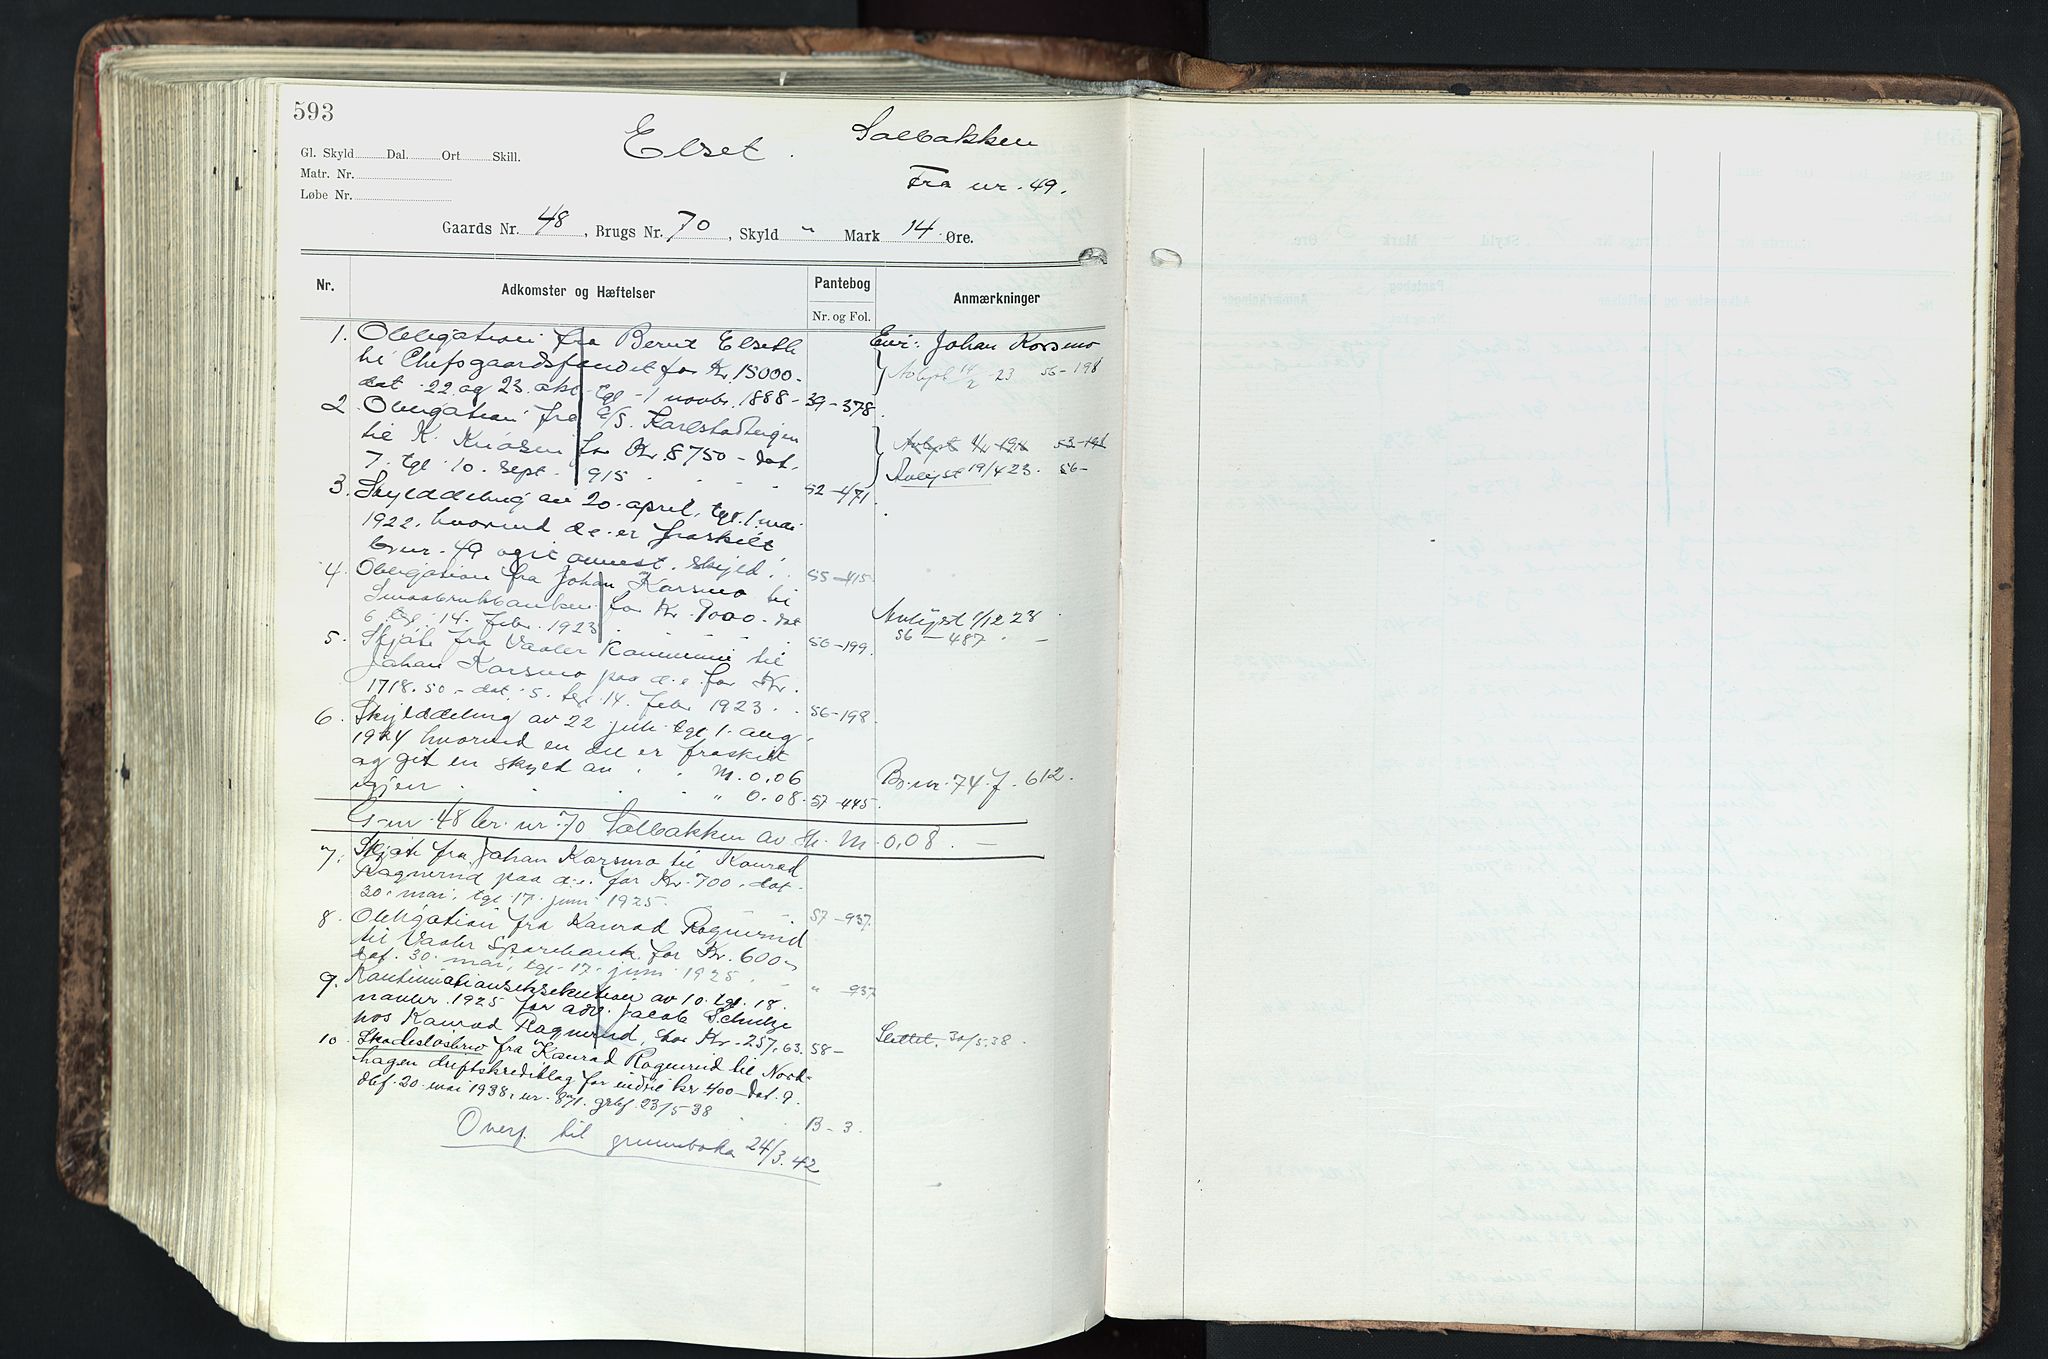 593
Elset. Solbakken
Gl. Skyld Dal. Ort Skill.
Matr. Nr.
Løbe Nr.
Fra nr. 49.
Gaards Nr. 48, Brugs Nr. 70, Skyld " Mark 14 Øre.
Nr. Adkomster og Hæftelser Pantebog Anmærkninger
Nr. og Fol.
1. Obligation fra Bernt Elseth Eier: Johan Korsmo
til Chefsgaardsfondet for Kr. 15000- Avlyst 14/2 23 56-198
dat. 22 og 23. okt. tgl. 1 novbr. 1888 - 39-378.
2. Obligation fra A/S. Karlstadbergen
til K. Knosen for Kr. 8750 - dat. 53-191
7. tgl. 10. sept. 915 52-471. Avlyst 19/4 23. 56-
3. Skylddeling av 20. april, tgl. 1. mai
1922, hvorved d.e. er fraskilt
br.nr. 49 og it annest. skyld. 55-415.
4. Obligation fra Johan Korsmo til
Smaabrukbanken for Kr. 9000- dat Avlyst 1/12 28
6. tgl. 14. febr. 1923 56-199. 56-487.
5. Skjøte fra Vaaler Kommune til
Johan Korsmo paa d.e. for Kr.
1718.50.- dat. 5. tgl. 14. febr. 1923. 56-198.
6. Skylddeling av 22 juli tgl. 1. aug.
1924 hvorved en del er fraskilt
og git en skyld av M. 0.06 Br. nr. 74. f. 612.
igjen " 0.08. 57-445.
G-nr. 48 br. nr. 70 Solbakken av sk. M. 0,08. -
7. Skjøte fra Johan Korsmo til Konrad
Rognerud paa d.e. for Kr. 700. dat.
30. mai, tgl. 17. juni 1925. 57-937.
8. Obligation fra Konrad Rognerud
til Vaaler Sparebank for Kr. 600-
dat. 30. mai, tgl. 17. juni 1925. " 937
9. Kontinuationseksekution av 10. tgl. 18.
novbr. 1925 for adv. Jacob Schulze
hos Konrad Rognerud, stor Kr. 257.63. 58- Slettet. 30/5.38.
10. Skadesløsbrev fra Konrad Rognerud til Nord-
hagen driftskredittlag for indtil kr 400- dat. 9.
dbf. 20. mai 1938, nr. 871. grbf. 23/5 38 B-3.
Overf. til grunnboka 24/3.42